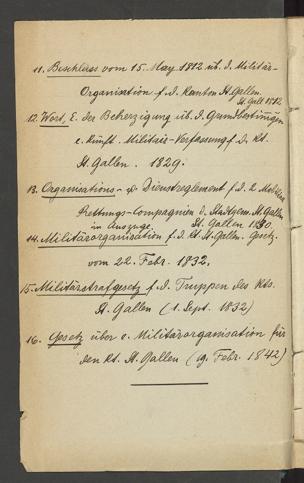 11. Beschluss vom 15. May 1812 üb. d. Militär-
Organisation f. d. Kanton St. Gallen.
St. Gall 1812.
12. Wort, E. der Beherzigung üb. d. Grundbestimmungen
e. künft. Militair-Verfassung f. d. Kt.
St. Gallen. 1829.
13. Organisations- & Dienstreglement f. d. 2 Mobilien
Rettungs-Compagnien d. Stadtgem. St. Gallen
in Auszuge. St. Gallen
14. Militärorganisation f. d. Kt. St. Gallen. Gesetz
vom 22. Febr. 1832.
15. Militärstrafgesetz f. d. Truppen des Kts.
St. Gallen (1. Sept. 1832)
16. Gesetz über e. Militärorganisation für
den Kt. St. Gallen (19. Febr. 1842)